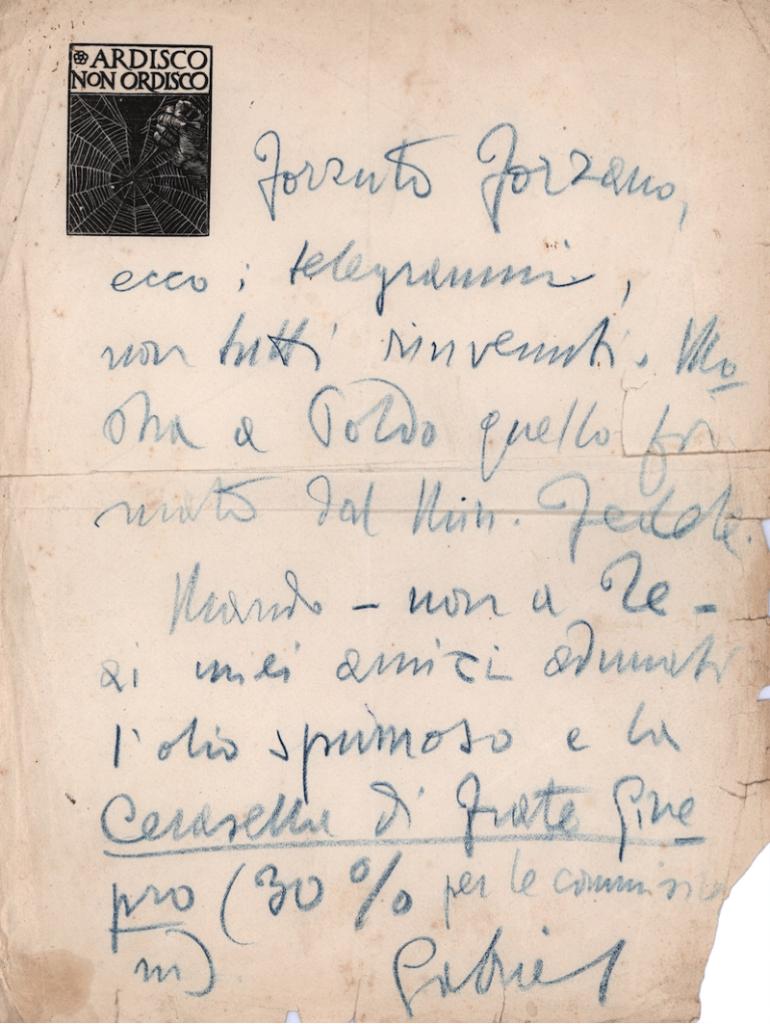 ARDISCO
NON ORDISCO
Forzuto Forzano,
ecco i telegrammi,
non tutti rinvenuti. Mo
stra a Poldo quello fir
mato dal Min. Fedele.
Mando – non a Te –
ai miei amici adunati
l'olio spumoso e la
Cerasella di frate Gine
pro (30 % per le commissio
ni)
Gabriel